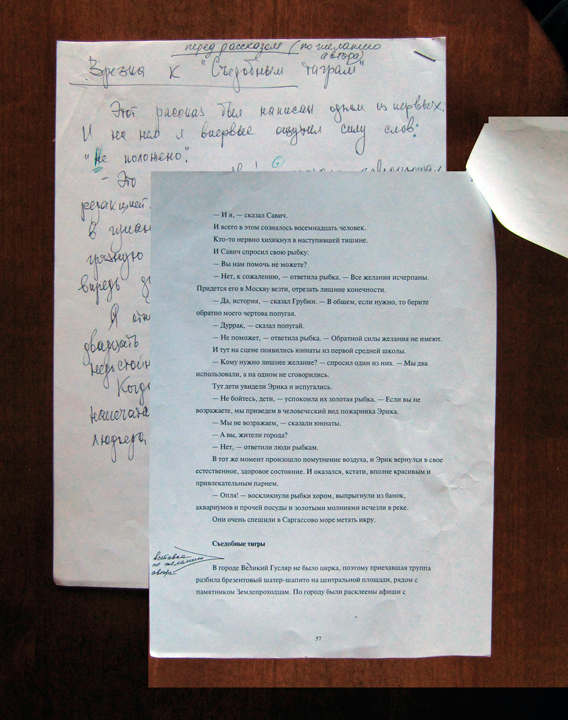 перед рассказом (по желанию
автора)
Врезка к "Съедобным тиграм"
Этот рассказ был написан одним из первых.
И на нем я впервые ощутил силу слов:
"Не положено".
– Это
редакцией.
в
грязную
впредь
Я
двадцать
Когда
напечата
людоеда,
— И я, — сказал Савич.
И всего в этом созналось восемнадцать человек.
Кто-то нервно хихикнул в наступившей тишине.
И Савич спросил свою рыбку:
— Вы нам помочь не можете?
— Нет, к сожалению, — ответила рыбка. — Все желания исчерпаны.
Придется его в Москву везти, отрезать лишние конечности.
— Да, история, — сказал Грубин. — В общем, если нужно, то берите
обратно моего чертова попугая.
— Дуррак, — сказал попугай.
— Не поможет, — ответила рыбка. — Обратной силы желания не имеют.
И тут на сцене появились юннаты из первой средней школы.
— Кому нужно лишнее желание? — спросил один из них. — Мы два
использовали, а на одном не сговорились.
Тут дети увидели Эрика и испугались.
— Не бойтесь, дети, — успокоила их золотая рыбка. — Если вы не
возражаете, мы приведем в человеческий вид пожарника Эрика.
— Мы не возражаем, — сказали юннаты.
— А вы, жители города?
— Нет, — ответили люди рыбкам.
В тот же момент произошло помутнение воздуха, и Эрик вернулся в свое
естественное, здоровое состояние. И оказался, кстати, вполне красивым и
привлекательным парнем.
— Опля! — воскликнули рыбки хором, выпрыгнули из банок,
аквариумов и прочей посуды и золотыми молниями исчезли в реке.
Они очень спешили в Саргассово море метать икру.
Съедобные тигры
вставка
по желанию
автора
В городе Великий Гусляр не было цирка, поэтому приехавшая труппа
разбила брезентовый шатер-шапито на центральной площади, рядом с
памятником Землепроходцам. По городу были расклеены афиши с
57